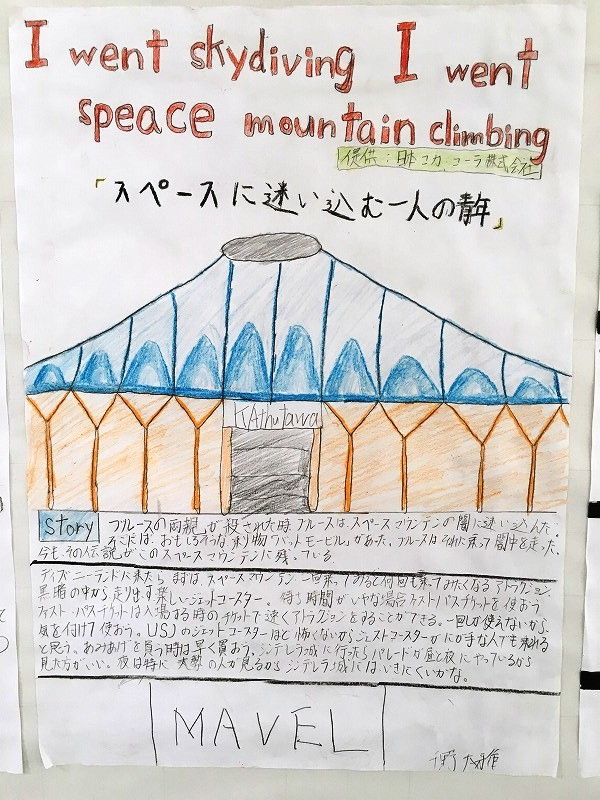 I went skydiving I went
speace mountain climbing
提供:日本コカ・コーラ株式会社
「スペースに迷い込む一人の青年」
KAthutawa
story
ブルースの両親が殺された時ブルースは、スペースマウンテンの闇に迷い込んだ。
そこには、おもしろそうな乗り物「バットモービル」があった。ブルースはそれに乗って闇中を走った。
今もその伝説がこのスペースマウンテンに残っている
ディズニーランドに来たら まずは スペースマウンテン 一回乗ってみると何回も乗ってみたくなるアトラクション。
真暗の中から走り出す楽しいジェットコースター。待ち時間がいやな場合ファストパスチケットを使おう
ファストパスチケットは入場する時のチケットで速くアトラクションをすることができる。一回しか使えないから
気を付けて使おう。USJのジェットコースターほど怖くないからジェストコースターがにが手な人でも乗れる
と思う。おみあげを買う時は早く買おう。シンデレラ城に行ったらパレードが昼と夜にやっているから
見た方がいい。夜は特に大勢の人が見るからシンデレラ城にはいきにくいかな。
MAVEL